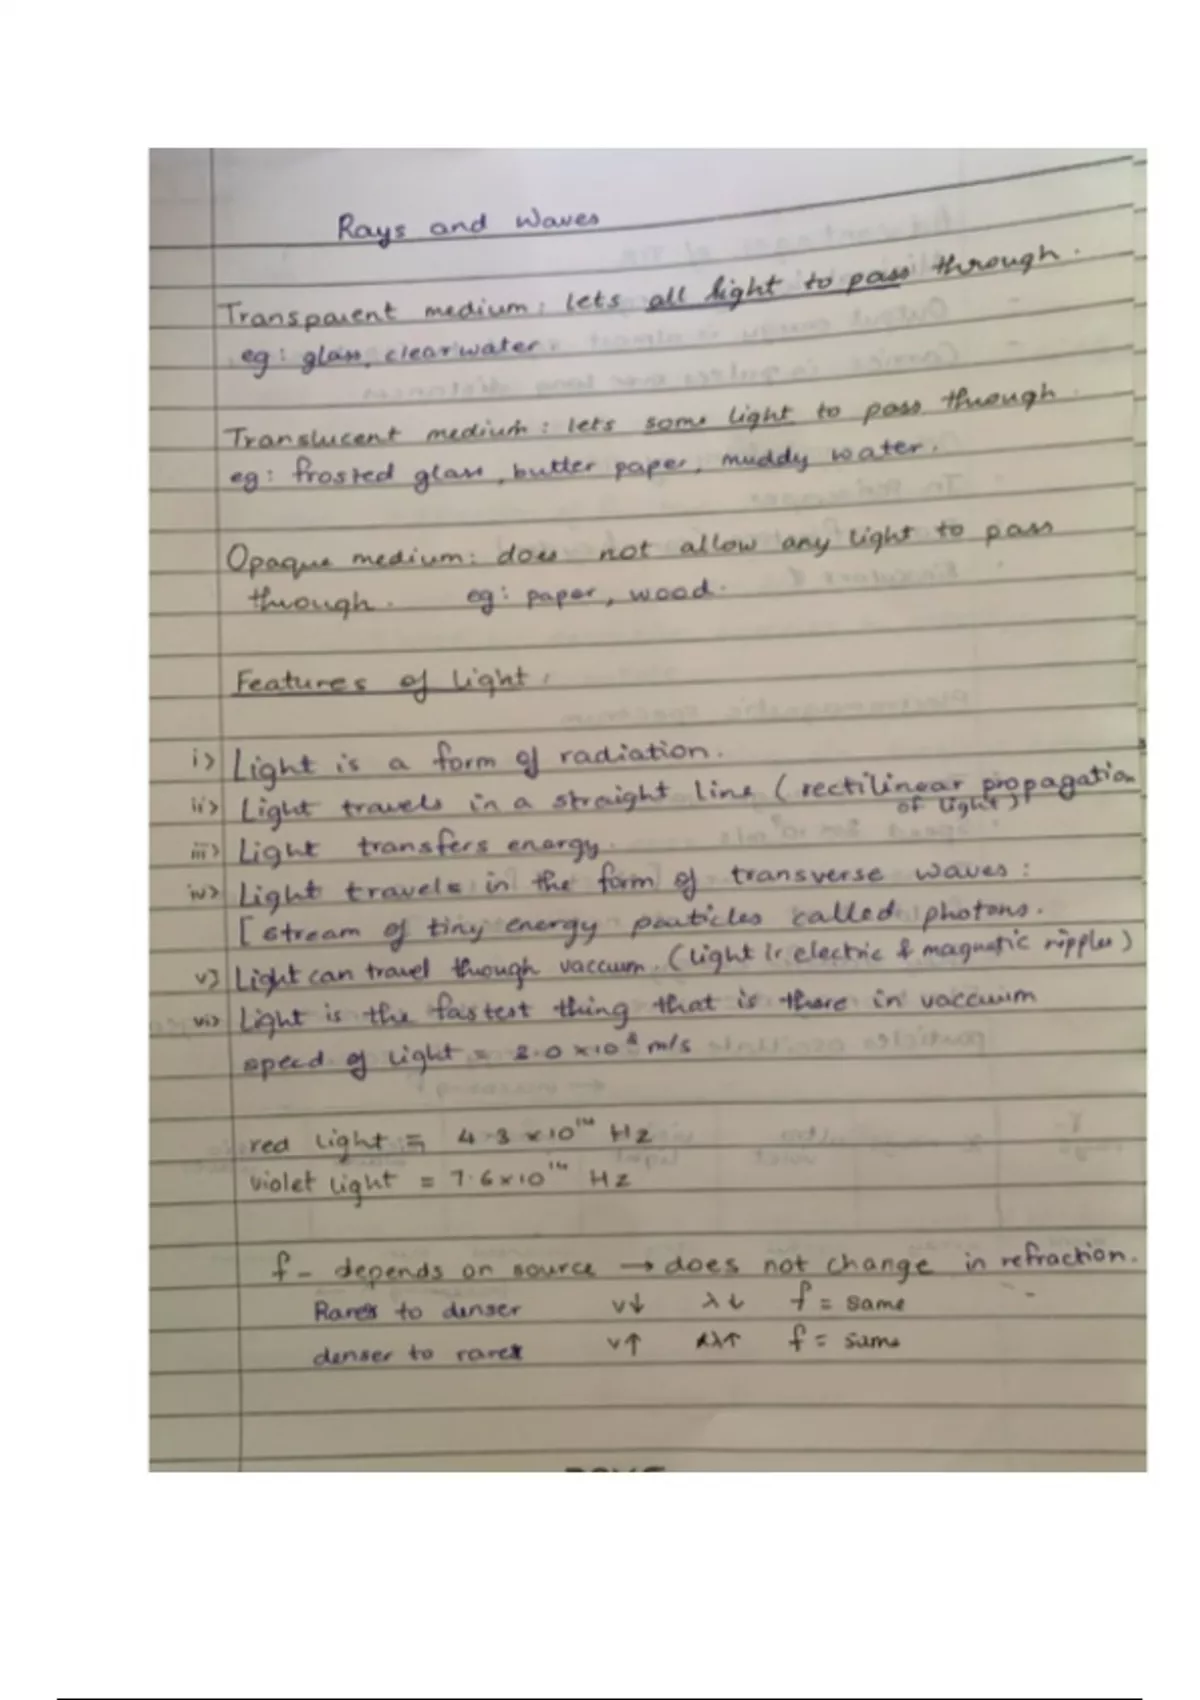 Rays and Waves
Transparent medium: lets all light to pass through.
eg: glass, clear water.
Translucent medium: lets some light to pass through.
eg: frosted glass, butter paper, muddy water.
Opaque medium: does not allow any light to pass
through. eg: paper, wood.
Features of light.
i> Light is a form of radiation.
ii> Light travels in a straight line (rectilinear propagation
of light)
iii> Light transfers energy.
iv> Light travels in the form of transverse waves:
[stream of tiny energy particles called photons.
v> Light can travel through vaccum. (light is electric & magnetic ripples)
vi> Light is the fastest thing that is there in vaccuum
speed of light = 3.0 x 10⁸ m/s
red light = 4.3 x 10¹⁴ Hz
violet light = 7.6 x 10¹⁴ Hz
f - depends on source → does not change in refraction.
Rarer to denser v↓ λ↓ f = same
denser to rarer v↑ λ↑ f = same